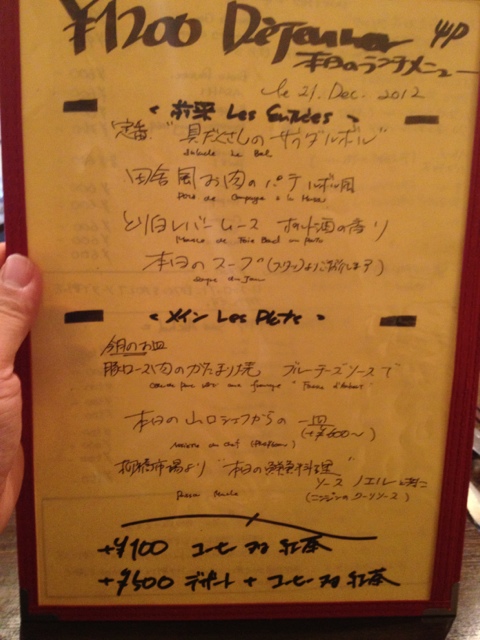 ¥1200 Déjeuner
本日のランチメニュー
le 21. Dec. 2012
< 前菜 Les Entrées >
定番 "具だくさんのサラダルボル"
Salade Le Bol
田舎風お肉のパテ ルボル風
Pâté de Campagne à la
とり白レバームース ポルト酒の香り
Mousse de Foie au Porto
本日のスープ (スタッフよりご紹介します)
Soupe du Jour
< メイン Les Plats >
今月のお皿
豚ロース肉のかたまり焼 ブルーチーズソースで
"Fourme d'Ambert"
本日の山口シェフからの一皿
(+¥600〜)
柳橋市場より "本日の鮮魚料理"
ソース ノエル
(ニンジンのクーリソース)
+¥100 コーヒー or 紅茶
+¥500 デザート + コーヒー or 紅茶